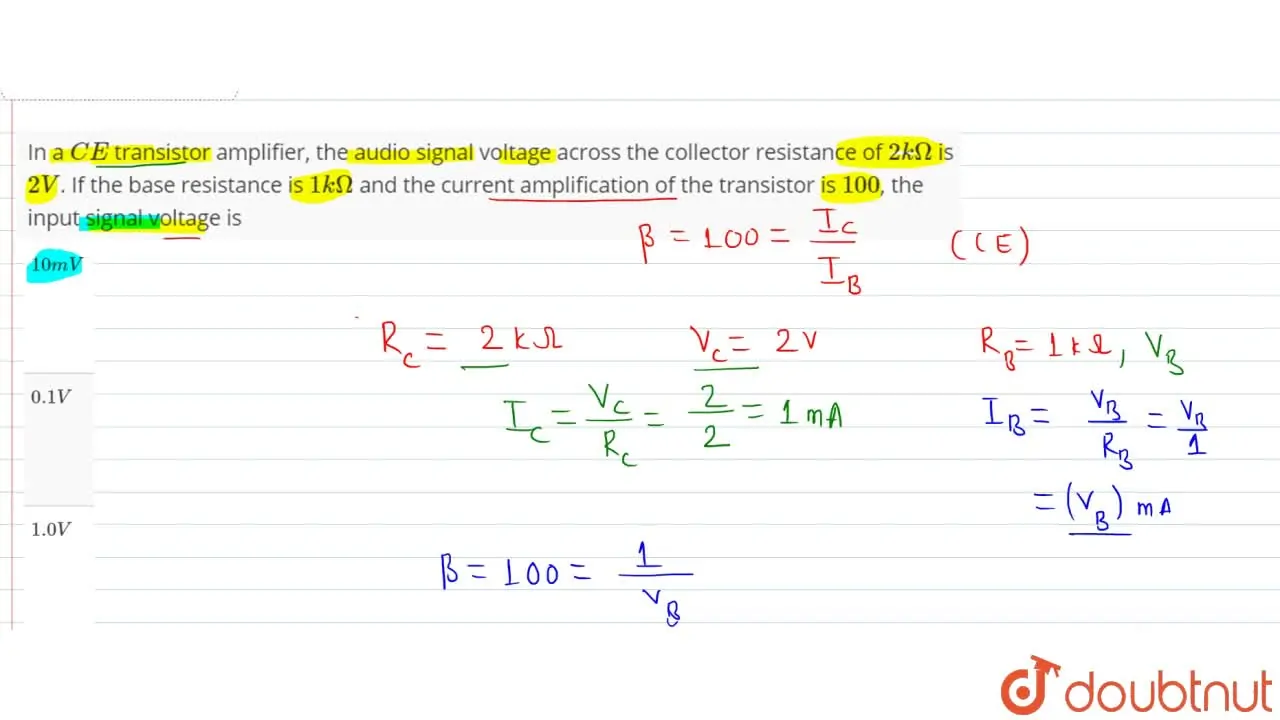 In a CE transistor amplifier, the audio signal voltage across the collector resistance of 2kΩ is
2V. If the base resistance is 1kΩ and the current amplification of the transistor is 100, the
input signal voltage is
β = 100 = I_C / I_B (CE)
10mV
R_C = 2 kΩ V_C = 2 V R_B = 1 kΩ, V_B
0.1V
I_C = V_C / R_C = 2 / 2 = 1 mA I_B = V_B / R_B = V_B / 1
= (V_B) mA
1.0V
β = 100 = 1 / V_B
doubtnut